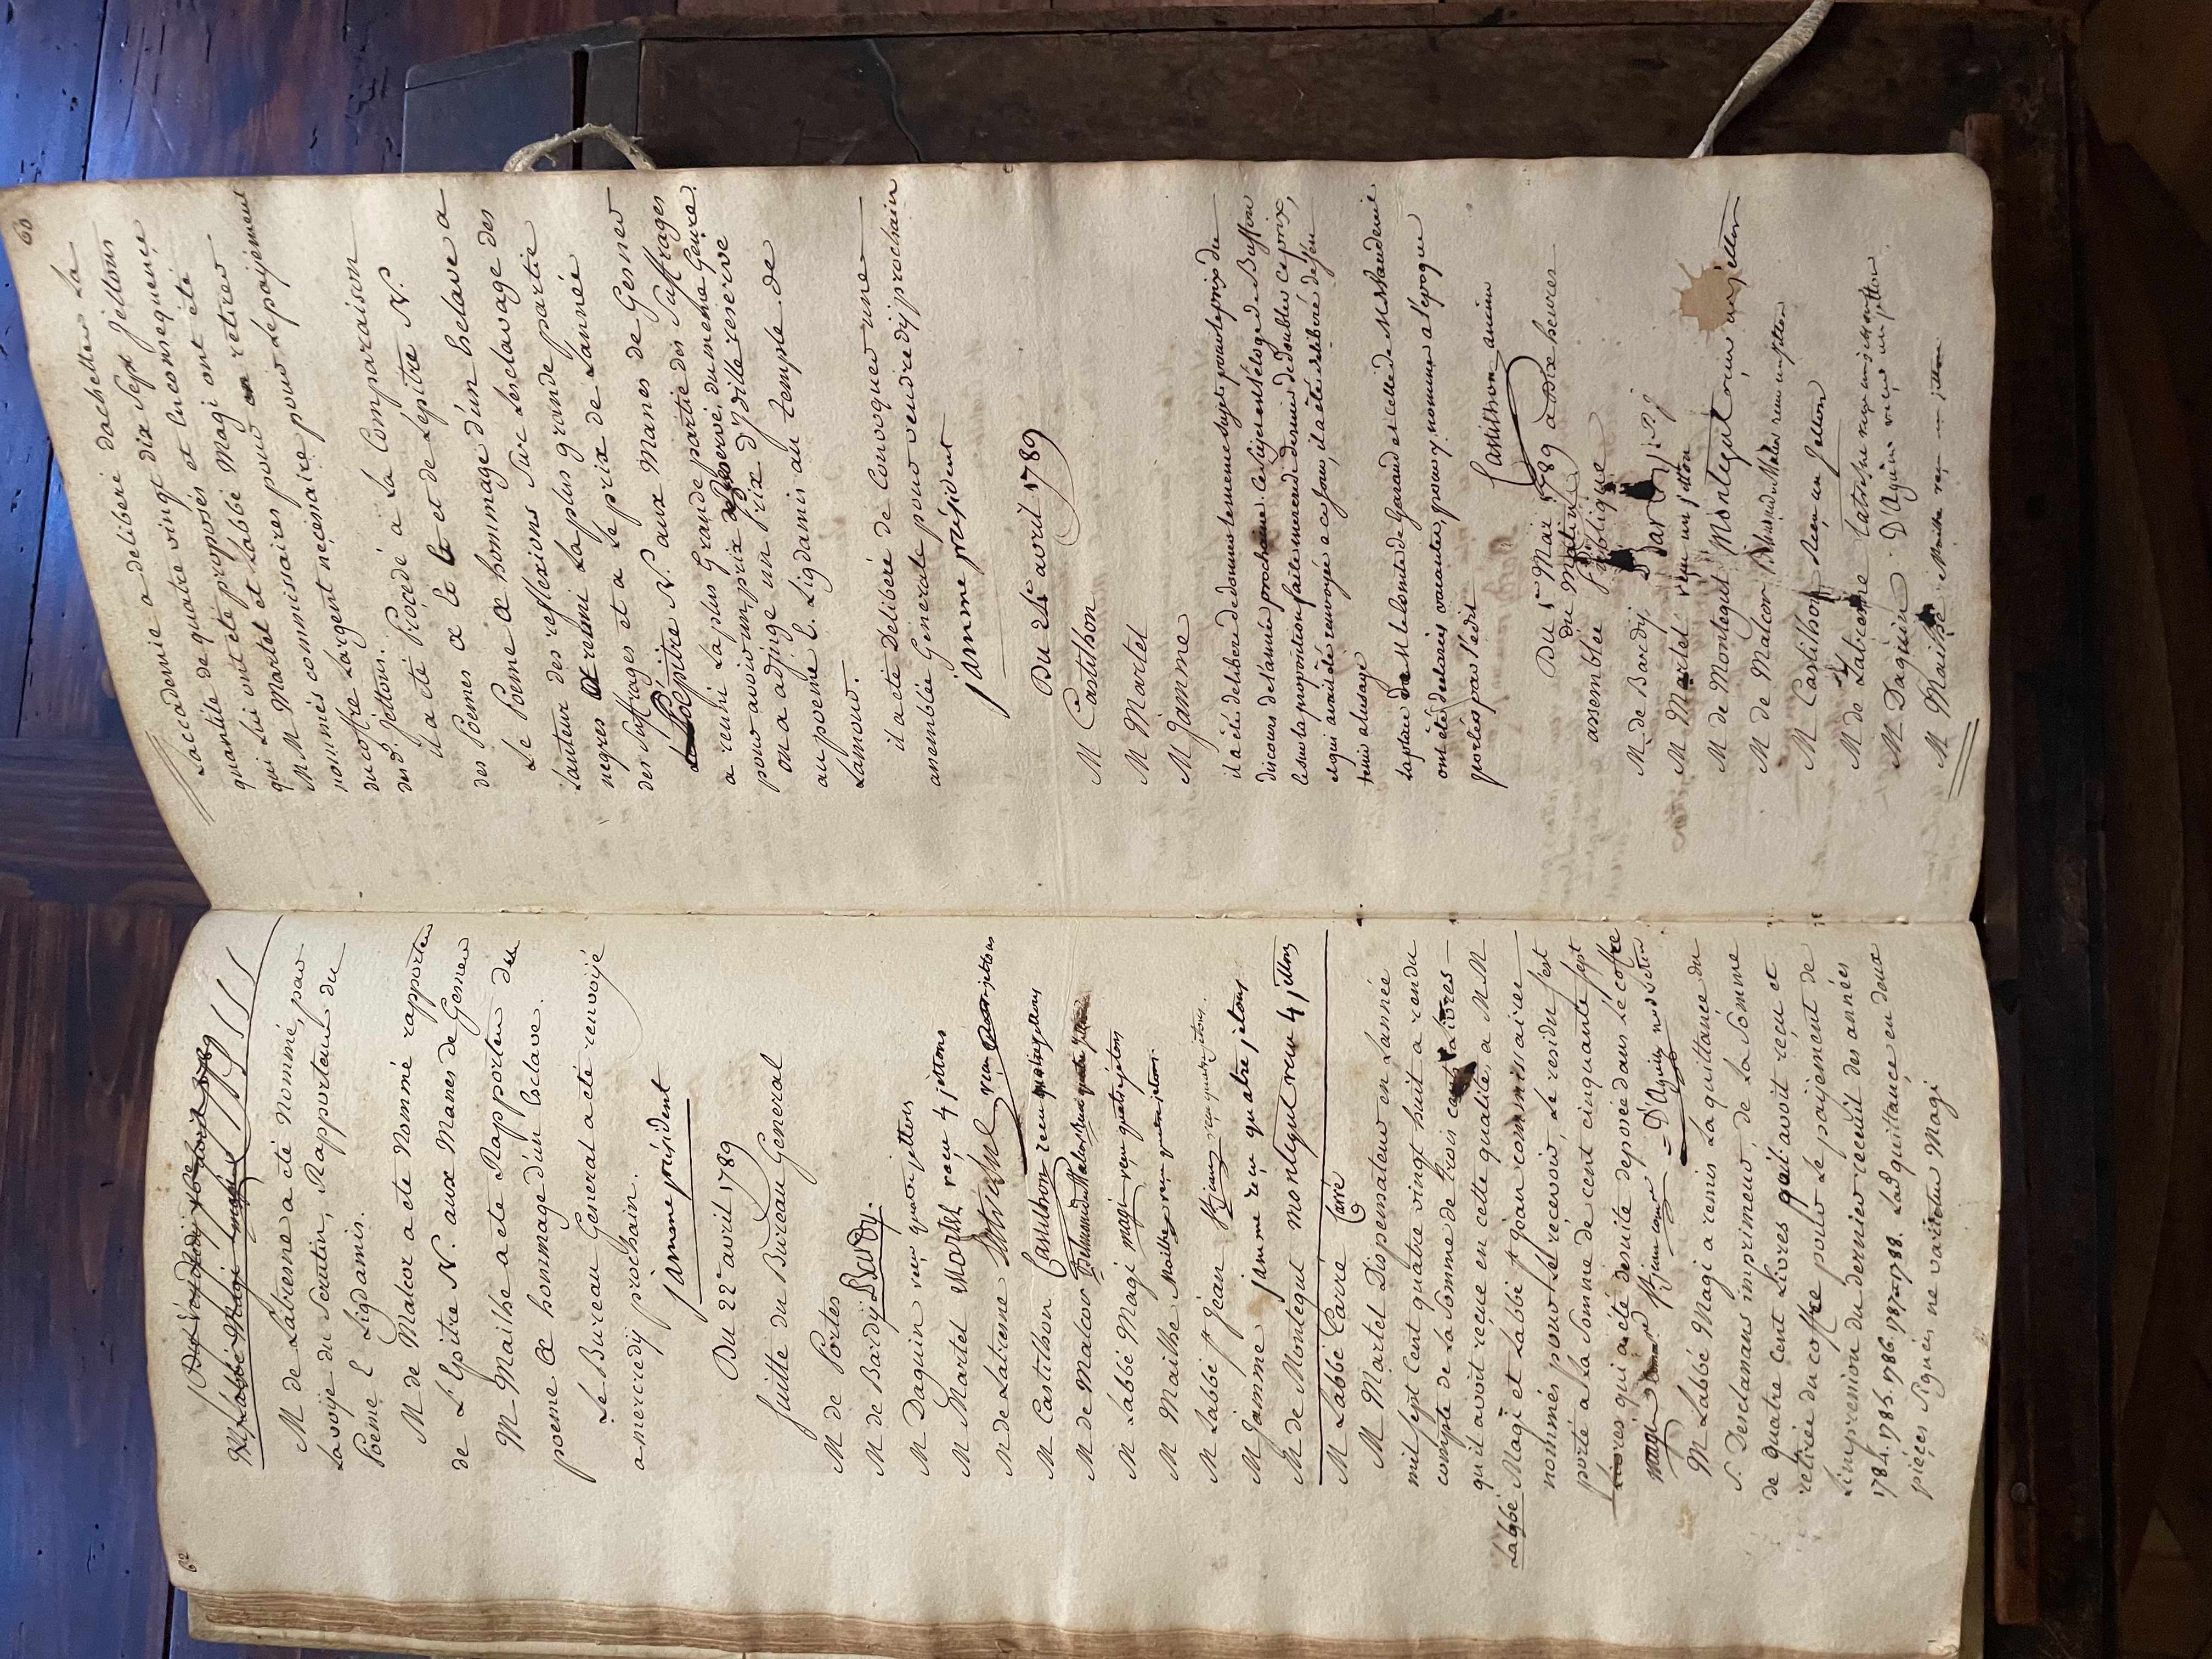 62
M. Labbé Magi
M de Latresne a été Nommé, par
La voÿe du Scrutin, Rapporteur du
Poeme L Ligdamis.
M de Malcor a ete Nommé rapporteur
de L'Epitre N. aux Manes de Gesner
M Mailhe a ete Rapporteur du
poeme Œ hommage d'un Esclave.
Le Bureau General a ete renvoÿé
a mercredij prochain.
jamme président
Du 22e avril 1789
Suitte du Bureau General
M de Portes
M de Bardÿ Bardy.
M Daguin reçu quatre jettons
M Martel Martel reçu 4 jettons
M de Latresne Latresne reçu jettons
M Castilhon Castilhon reçu quatre jettons
M de Malcor
M Labbé Magi magi reçu quatre jetons
M Mailhe Mailhe reçu quatre jetons.
M Labbé St Jean St jean reçu quatre jetons.
M Jamme jamme reçu quatre jetons
M de Montegut montegut reçu 4 jettons
M Labbé Carré Carré
M Martel Dispensateur en Lannée
mil sept Cent quatre vingt huit a rendu
compte de La Somme de trois cent Livres
qu'il avoit reçue en cette qualité, a MM
Labbé Magi et Labbé St Jean commissaires
nommés pour Le recevoir, Le residu s'est
porté a La Somme de cent cinquante sept
Livres qui a été desuite deposée dans Le coffre
magi St jean = D'Aguin
M Labbé Magi a remis La quittance du
S. Desclassans imprimeur, de La Somme
de quatre Cent Livres quil avoit reçu et
retirée du coffre pour Le paijement de
L'impression du dernier recueil des années
1784. 1785. 1786. 1787 et 1788. Lad. quittance en deux
pieces Signées ne varietur Magi
60
Laccademie a deliberé dachetter La
quantité de quatre vingt dix Sept Jettons
qui Lui ont été proposés et En consequence
MM Martel et Labbé Magi ont été
nommés commissaires pour en retirer
du coffre Largent necessaire pour Le paijement
des d. Jettons.
il a été Procedé a La Comparaison
des Poemes Œ L et de Lepitre N.
Le Poeme Œ hommage d'un Esclave a
Lauteur des reflexions Sur Lesclavage des
negres a reuni La plus grande partie
des Suffrages et a Le prix de Lannée
Lepitre N. aux Manes de Gesner
a reuni La plus Grande partie des Suffrages
pour avoir un prix reservé du meme Genre.
on a adjugé un Prix d'ydille reservé
au poeme L. Ligdamis au temple de
Lamour.
il a eté Deliberé de Convoquer une
assemblée Generale pour vendredij prochain
jamme président
Du 24e avril 1789
M Castilhon
M Martel
M Jamme
il a été deliberé de donner le meme sujet pour le prix du
discours de l'année prochaine. Ce sujet est l'éloge de Buffon
et sur la proposition faite mercredi dernier de doubler ce prix,
et qui avait été renvoyée a ce jour, il a été deliberé de s'en
tenir a l'usage
la place de M le Comte de Garaud et celle de M
ont été declarées vacantes, pour y nommer a l'epoque
portée par l'édit
Castilhon ancien
Du 1er Mai 1789 a dix heures
du Matin
assemblée publique
M de Bardÿ Bardy
M Martel reçu un jetton
M de Montegut Montegut reçu un jetton
M de Malcor reçu un jetton
M Castilhon Reçu un Jetton
M de Latresne Latresne reçu un jetton
M Daguin D'Aguin reçu un jetton
M Mailhe Mailhe reçu un jetton